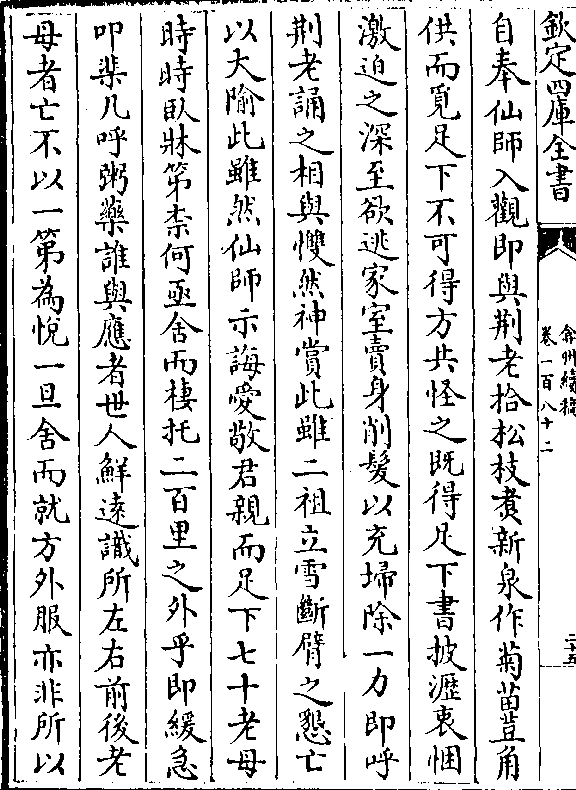 欽定四庫全書
弇州續稿
卷一百八十二
二十五
自奉仙師入觀即與荆老拾松枝煑新泉作菊苗荳角
供而覓足下不可得方共怪之既得足下書披瀝衷悃
激迫之深至欲逃家室賣身削髮以充埽除一力即呼
荆老誦之相與戄然神賞此雖二祖立雪斷臂之懇亡
以大隃此雖然仙師示誨愛敬君親而足下七十老母
時時臥牀第柰何亟舍而棲托二百里之外乎即緩急
叩棐几呼粥藥誰與應者世人鮮遠識所左右前後老
母者亡不以一第為悅一旦舍而就方外服亦非所以